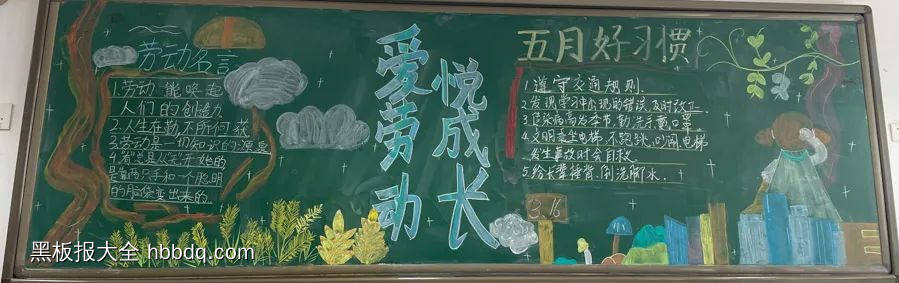 劳动名言
1.劳动能唤起
人们的创造力
2.人生在勤,不所何获
3.劳动是一切知识的源泉
4.
是靠两只手和一个聪明
的脑袋变出来的
爱劳动
悦成长
五月好习惯
1.遵守交通规则.
2.发现学习中出现的错误,及时改正
3.传染病高发季节,勤洗手戴口罩
4.文明乘坐电梯,不跑跳、吵闹,电梯
发生事故时会自救.
5.给长辈捶背、倒洗脚水.
3.16
黑板报大全 hbbdq.com